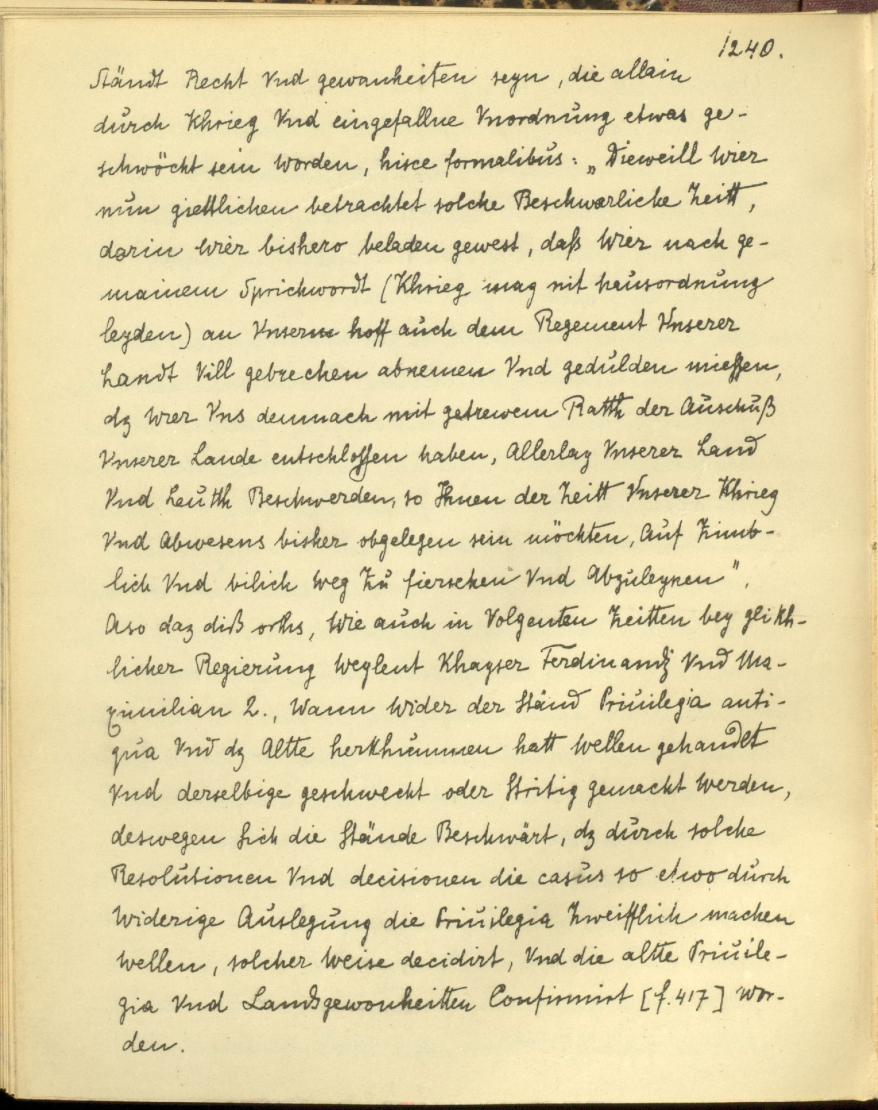 1240.
Ständt Recht Vnd gewanheiten seyn, die allain
durch Khrieg Vnd eingefallne Vnordnung etwas ge-
schwöcht sein worden, hisce formalibus: „Dieweill wier
nun giettlichen betrachtet solche Beschwerliche Zeitt,
darin wier bishero beladen gewest, daß wier nach ge-
mainem Sprichwordt (Khrieg mag nit hausordnung
leyden) an Vnserm hoff auch dem Regement Vnserer
Landt Vill gebrechen abnemen Vnd gedulden mießen,
dz wier Vns demnach mit getrewem Ratth der Auschuß
Vnserer Lande entschloßen haben, Allerlay Vnserer Land
Vnd Leutth Beschwerden, so Ihnen der Zeitt Vnserer Khrieg
Vnd Abwesens bisher obgelegen sein möchten, Auf Zimb-
lich Vnd bilich weg Zu fiersehen Vnd Abzuleynen".
Also daz diß orths, wie auch in Volgenten Zeitten bey glikh-
licher Regierung weylent Khayser Ferdinandj Vnd Ma-
ximilian 2., Wann wider der Ständ Priuilegia anti-
qua Vnd dz Altte herkhummen hatt wellen gehandlt
Vnd derselbige geschwecht oder Stritig gemacht werden,
deswegen Sich die Stände Beschwärt, dz durch solche
Resolutionen Vnd decisionen die casus so etwo durch
widerige Auslegung die Priuilegia Zweifflich machen
wellen, solcher weise decidirt, Vnd die altte Priuile-
gia Vnd Landsgewonheitten Confirmirt [f. 417] wor-
den.